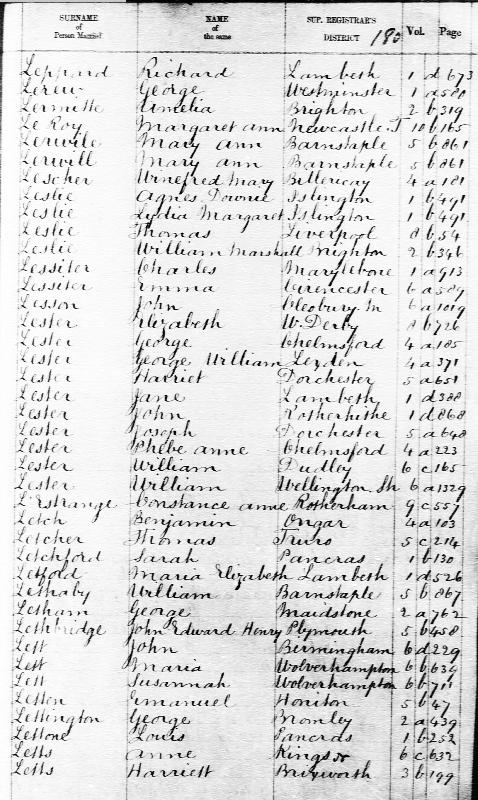 SURNAME of Person Married NAME of the same SUP. REGISTRAR'S DISTRICT Vol. Page
Leppard Richard Lambeth 1 d 673
George Westminster 1 a 580
Lermitte Amelia Brighton 2 b 319
Le Roy Margaret Ann Newcastle T 10 b 165
Lerwile Mary Ann Barnstaple 5 b 861
Lerwill Mary Ann Barnstaple 5 b 861
Lescher Winefred Mary Billericay 4 a 181
Leslie Agnes Downie Islington 1 b 491
Leslie Lydia Margaret Islington 1 b 491
Leslie Thomas Liverpool 8 b 54
Leslie William Marshall Brighton 2 b 346
Lessiter Charles Marylebone 1 a 913
Lessiter Emma Cirencester 6 a 589
Lesson John Cleobury M 6 a 1019
Lester Elizabeth W. Derby 8 b 726
Lester George Chelmsford 4 a 185
Lester George William Lexden 4 a 371
Lester Harriet Dorchester 5 a 651
Lester Jane Lambeth 1 d 388
Lester John Rotherhithe 1 d 868
Lester Joseph Dorchester 5 a 648
Lester Phebe Anne Chelmsford 4 a 223
Lester William Dudley 6 c 165
Lester William Wellington Sh 6 a 1329
L'Estrange Constance Anne Rotherham 9 c 557
Letch Benjamin Ongar 4 a 103
Letcher Thomas Truro 5 c 214
Letchford Sarah Pancras 1 b 130
Letford Maria Elizabeth Lambeth 1 d 526
Lethaby William Barnstaple 5 b 867
Letham George Maidstone 2 a 762
Lethbridge John Edward Henry Plymouth 5 b 458
Lett John Birmingham 6 d 229
Lett Maria Wolverhampton 6 b 639
Lett Susannah Wolverhampton 6 b 711
Letten Emanuel Honiton 5 b 47
Lettington George Bromley 2 a 439
Lettone Louis Pancras 1 b 252
Letts Anne Kings N 6 c 632
Letts Harriett Brixworth 3 b 199